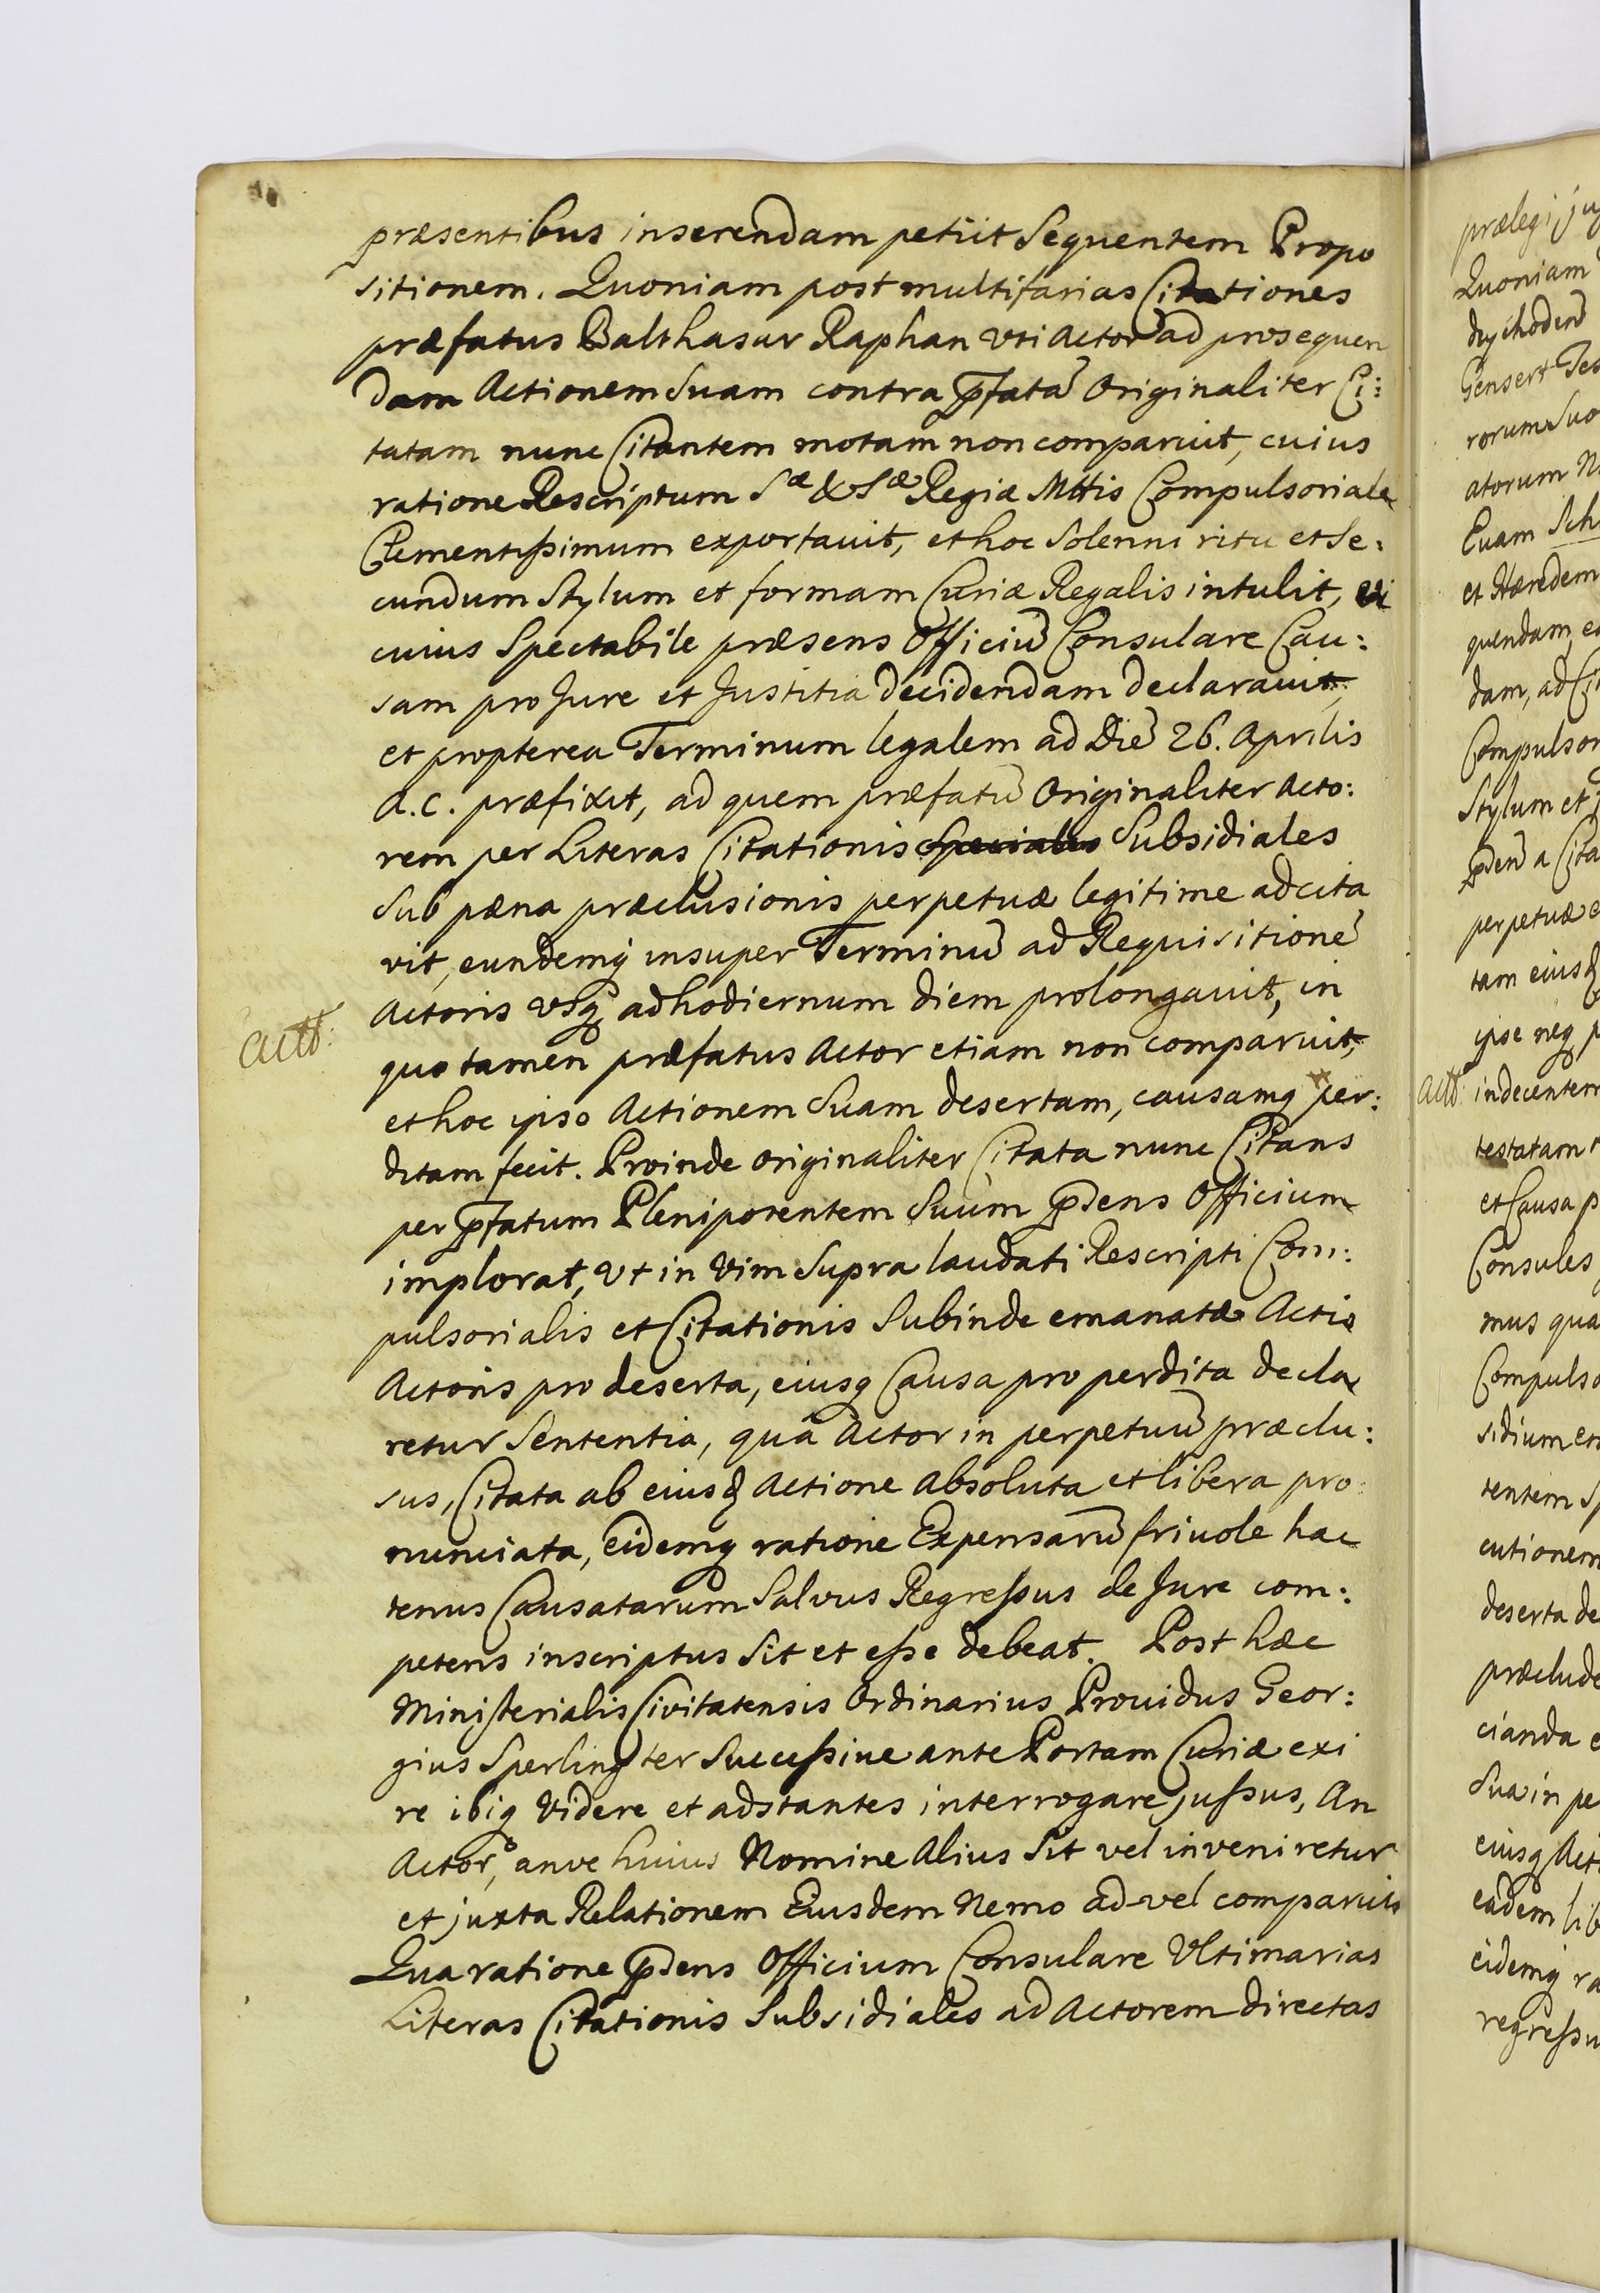 præsentibus inserendam petiit Sequentem Propo
sitionem. Quoniam post multifarias Citationes
præfatus Balthasar Raphan vti Actor ad prosequen
dam Actionem Suam contra p̄fatā Originaliter Ci:
tatam nunc Citantem motam non comparuit, cuius
ratione Rescriptum Sæ & Sæ Regiæ Mttis Compulsoriale
Clementißimum exportauit, et hoc Solenni ritu et Se:
cundum Stylum et formam Curiæ Regalis intulit, vi
cuius Spectabile præsens Officiū Consulare Cau:
sam pro Jure et Justitia decidendam declarauit,
et propterea Terminum legalem ad Diē 26. Aprilis
A.C. præfixit, ad quem præfatū Originaliter Acto:
rem per Literas Citationis Speciales Subsidiales
Sub pæna præclusionis perpetuæ legitime adcita
vit, eundemq insuper Terminū ad Requisitionē
Actoris vsq ad hodiernum diem prolongauit, in
actt:
quo tamen præfatus Actor etiam non comparuit,
et hoc ipso Actionem Suam desertam, causamq per:
ditam fecit. Proinde originaliter Citata nunc Citans
per p̄fatum Plenipotentem Suum p̄sens Officium
implorat, Vt in Vim Supra laudati Rescripti Com:
pulsorialis et Citationis Subinde emanatæ Actio
Actoris pro deserta, eiusq Causa pro perdita decla
retur Sententia, quâ Actor in perpetuū præclu:
sus, Citata ab eiusd Actione Absoluta et libera pro:
nunciata, Eidemq ratione Expensarū friuole hac
tenus Causatarum Salvus Regreßus de Jure com:
petens inscriptus Sit et eße debeat. Post hæc
Ministerialis Civitatensis Ordinarius Prouidus Geor:
gius Sperling ter Succeßiue ante Portam Curiæ exi
re ibiq Videre et adstantes interrogare jußus, An
Actor, anve huius Nomine Alius Sit vel inveniretur
et juxta Relationem Eiusdem Nemo ad vel comparuit
Qua ratione p̄sens Officium Consulare Vltimarias
Literas Citationis Subsidiales ad Actorem directas
prælegi ju
Quoniam
Gensert Tes
rorum Suo
atorum N
Euam Sch
et Hæredem
quendam, ea
dam, ad Cit
Compulsor
Stylum et f
p̄sens a Cita
perpetuæ e
tam eiusd
ipse neq p
actt: indecentem
testatam
et Causa p
Consules
mus qua
Compulso
sidium em
tentem Sp
cutionem
deserta de
præclude
cianda e
Sua in pe
eiusq Act
eâdem lib
eidemq ra
regreßu